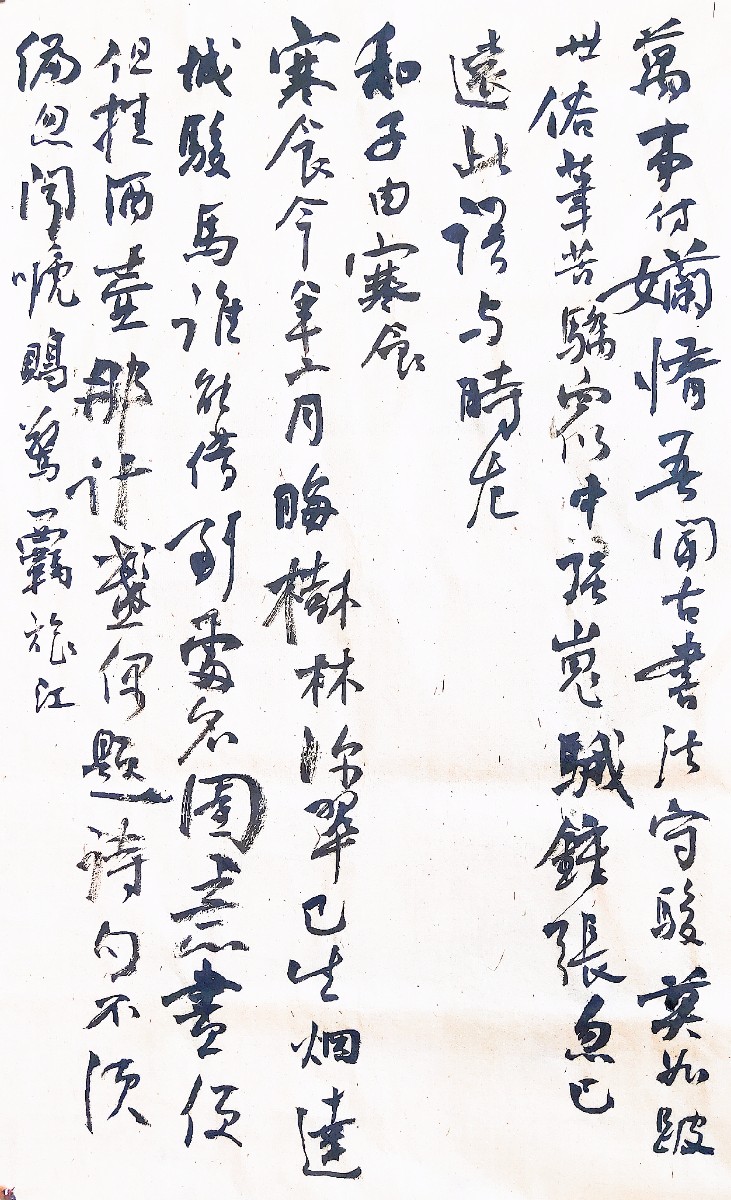 萬事付嬾惰吾聞古書法守駿莫如跛
世俗筆苦驕衆中强嵬騀鍾張忽已
遠此語与時左
和子由寒食
寒食今年二月晦樹林深翠已生烟遶
城駿馬誰能借到處名園意盡便
但挂酒壺那計盞偶題詩句不須
編忽聞嗁鵙驚羈旅江